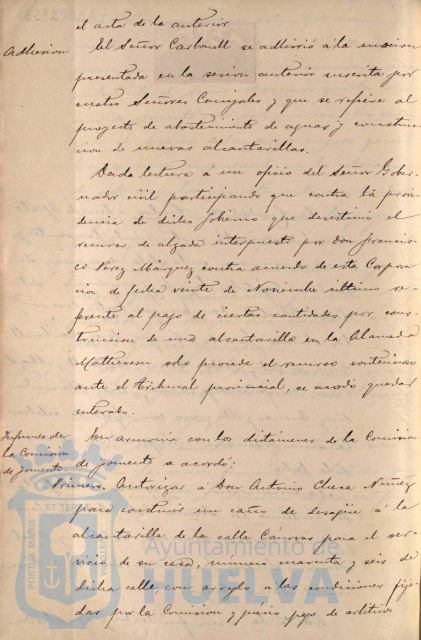 el acta de la anterior
Adhesion
El Señor Carbonell se adhirió á la mocion
presentada en la sesion anterior suscrita por
cuatro Señores Concejales y que se refiere al
proyecto de abastecimiento de aguas y construc-
cion de nuevas alcantarillas.
Dada lectura á un oficio del Señor Gober-
nador civil participando que contra la provi-
dencia de dicho Gobierno que desestimó el
recurso de alzada interpuesto por Don Francis-
co Perez Marquez contra acuerdo de esta Corpora-
cion de fecha veinte de Noviembre último re-
ferente al pago de ciertas cantidades por cons-
truccion de una alcantarilla en la Alameda
Matheson solo procede el recurso contencioso
ante el tribunal provincial, se acordó quedar
enterado.
Informes de
la Comision
de fomento.
En armonia con los dictámenes de la Comision
de fomento se acordó:
Primero. Autorizar á Don Antonio Checa Nuñez
para construir un caño de desagüe á la
alcantarilla de la calle Cánovas para el ser-
vicio de su casa, número cuarenta y seis de
dicha calle, con arreglo á las condiciones fija-
das por la Comision y previo pago de arbitrios
PORTUS MARIS
ET TER
Ayuntamiento de
HUELVA